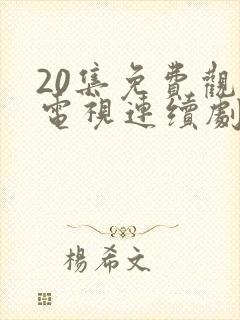 20集免費觀
電視連續劇
楊希文